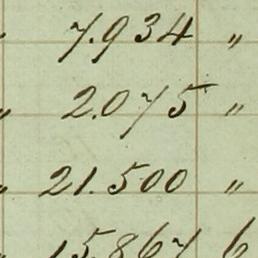 " 7.934 "
" 2.075 "
" 21.500 "
" 15.867 6